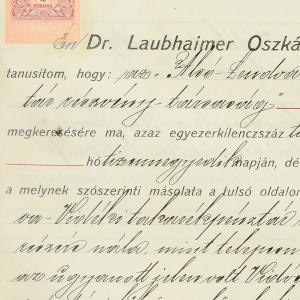 KORONA
Én Dr. Laubhaimer Oszká
tanusitom, hogy: az "Alsó-Lendva
tár részvény-társaság"
megkeresésére ma, azaz egyezerkilenczszáz t
hó tizennegyedik napján, dé
a melynek szószerinti másolata a tulsó oldalo
va-Vidéki takarékpénztár
részére nála, mint telepen
az ugyanott jelen volt Vid